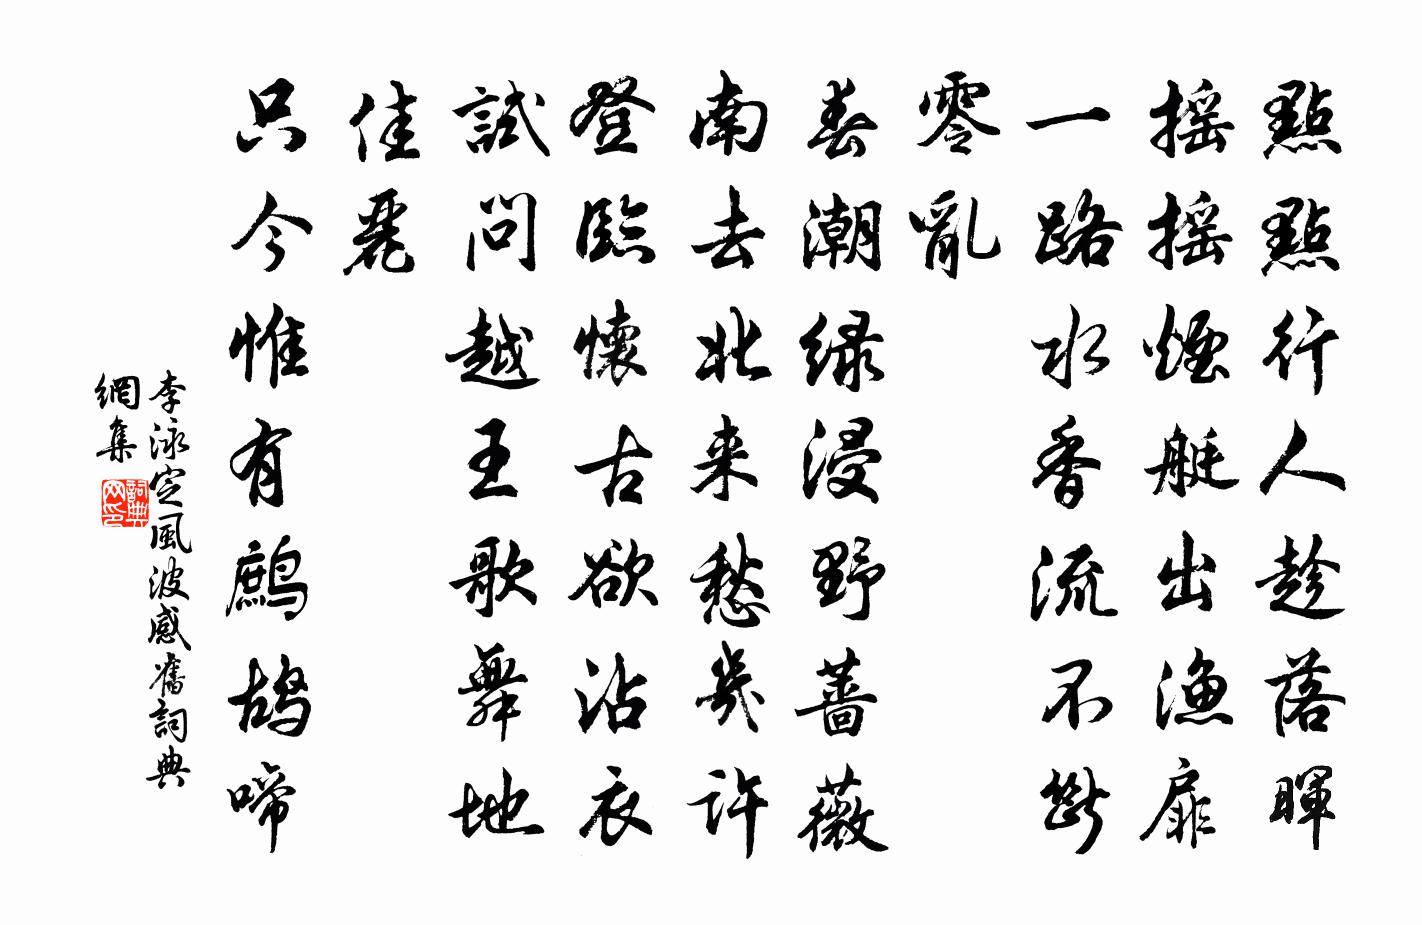 點點行人趁落暉
搖搖煙艇出漁扉
一路水香流不斷
零亂
春潮綠浸野薔薇
南去北來愁幾許
登臨懷古欲沾衣
試問越王歌舞地
佳麗
只今惟有鷓鴣啼
李泳定風波感舊詞典
網集
詞典
网印